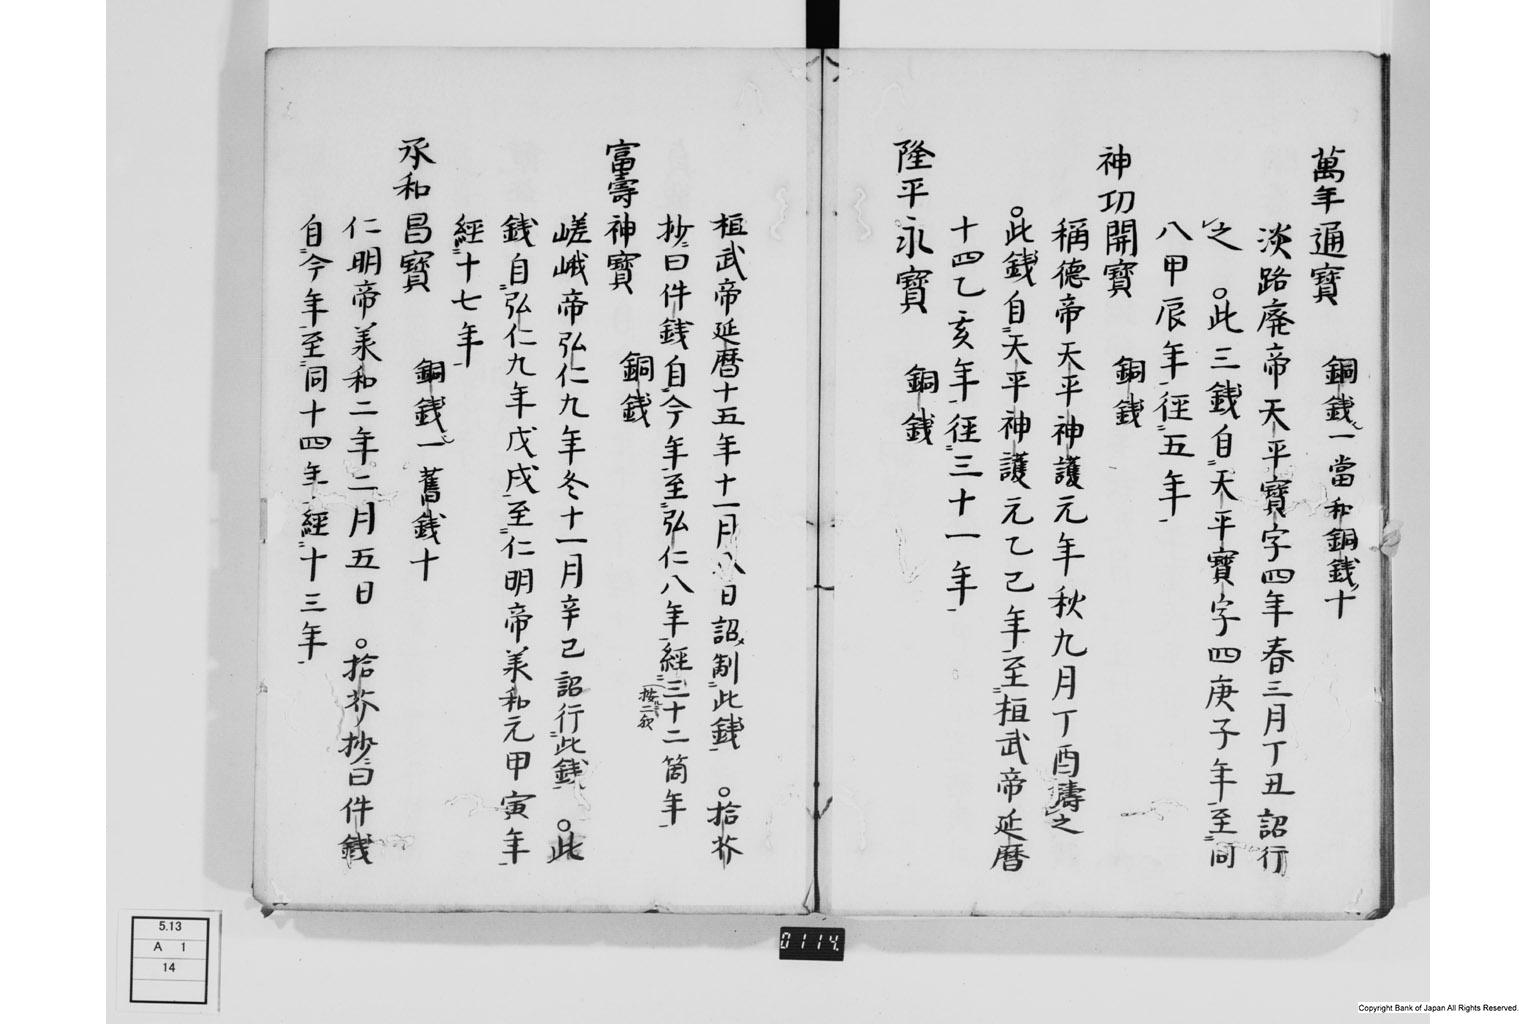 萬年通寳　銅銭一當和銅銭十
淡路廃帝天平寳字四年春三月丁丑詔行
之　○此三銭自天平寳字四庚子年至同
八甲辰年径五年
神功開寳　銅銭
稱德帝天平神護元年秋九月丁酉鑄之
○此銭自天平神護元乙已年至桓武帝延暦
十四乙亥年径三十一年
隆平永寳　銅銭
桓武帝延暦十五年十一月八日詔制此銭　○拾芥
抄曰件銭自今年至弘仁八年經三十二箇年
按二
富壽神寳　銅銭
嵯峨帝弘仁九年冬十一月辛已詔行此銭　○此
銭自弘仁九年戊戌至仁明帝羕和元甲寅年
經十七年
承和昌寳　銅銭一舊銭十
仁明帝羕和二年二月五日　○拾芥抄曰件銭
自今年至同十四年經十三年
5.13
A 1
14
0114
Copyright Bank of Japan All Rights Reserved.